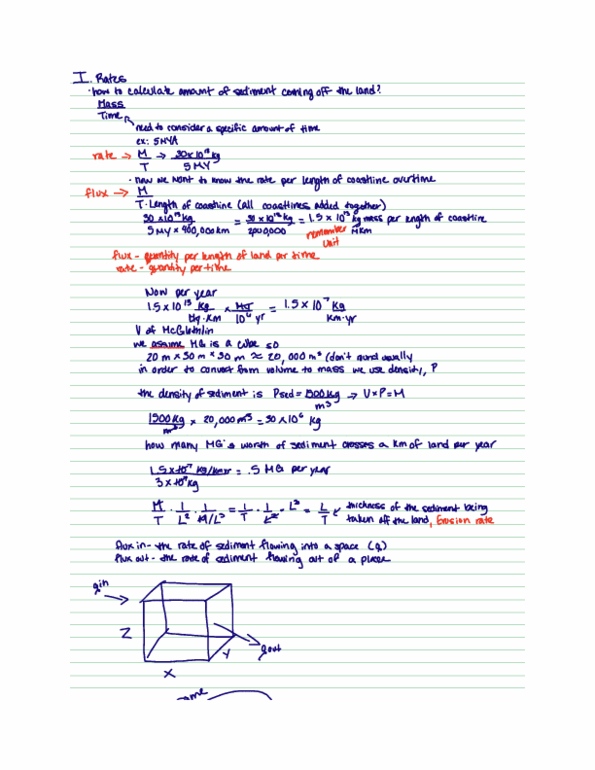 I. Rates
· how to calculate amount of sediment coming off the land?
Mass
Time
need to consider a specific amount of time
ex: 5 MYA
rate → M → 30 x 10^18 kg
T 5 MY
· now we want to know the rate per length of coastline overtime
flux → M
T · Length of coastline (all coastlines added together)
30 x 10^18 kg = 30 x 10^18 kg = 1.5 x 10^13 kg mass per length of coastline
5 MY x 400,000 km 2000,000 MKm
remember unit
flux - quantity per length of land per time
rate - quantity per time
Now per year
1.5 x 10^13 kg x = 1.5 x 10^7 kg
km 10^6 yr km·yr
V of McGlothlin
we assume MG is a cube so
20 m x 30 m x 30 m ≈ 20,000 m^3 (don't round usually
in order to convert from volume to mass we use density, P
the density of sediment is Psed = 1500 kg → V x P = M
m^3
1500 kg x 20,000 m^3 = 30 x 10^6 kg
m^3
how many MG's worth of sediment crosses a km of land per year
1.5 x 10^7 kg/km·yr = .5 MG per year
3 x 10^7 kg
M · 1 · 1 = 1 · 1 · L^3 = L ← thickness of the sediment being
T L^2 M/L^3 T L^2 T taken off the land, Erosion rate
flux in - the rate of sediment flowing into a space (q)
flux out - the rate of sediment flowing out of a place
qin
Z
qout
Y
X
same